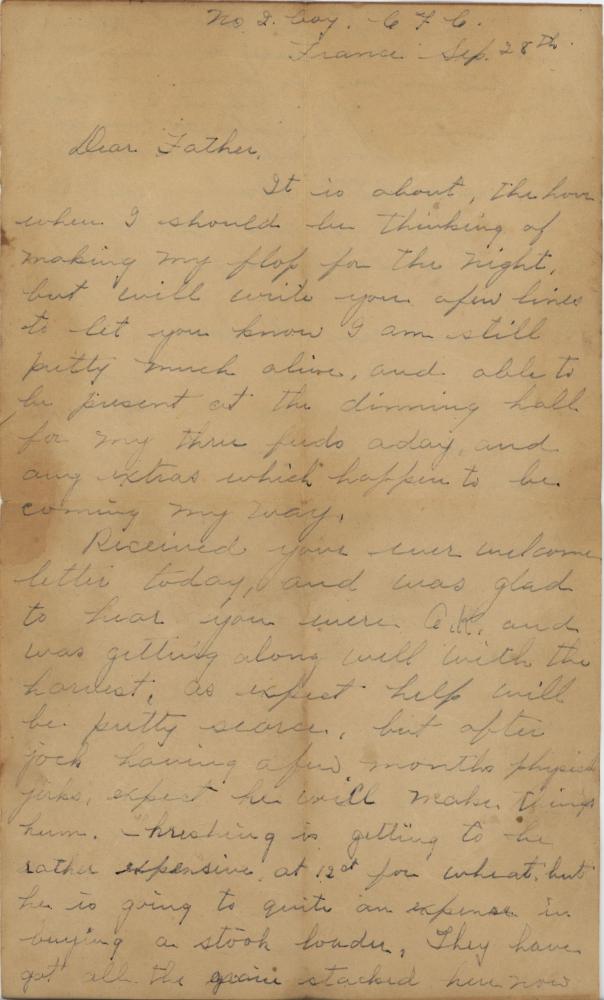 No 2. Coy. C F C.
France Sep. 28th.
Dear Father,
It is about, the hour
when I should be thinking of
making my flop for the night,
but will write you afew lines
to let you know I am still
pretty much alive, and able to
be present at the dinning hall
for my three feeds aday, and
any extras which happen to be
coming my way.
Received your ever welcome
letter today, and was glad
to hear you were O.K. and
was getting along well with the
harvest, as expect help will
be pretty scarce, but after
jock having afew months physical
jirks, expect he will make things
hum. Threshing is getting to be
rather expensive, at 12ct for wheat, but
he is going to quite an expense in
buying a stook loader, They have
got all the grain stacked here now